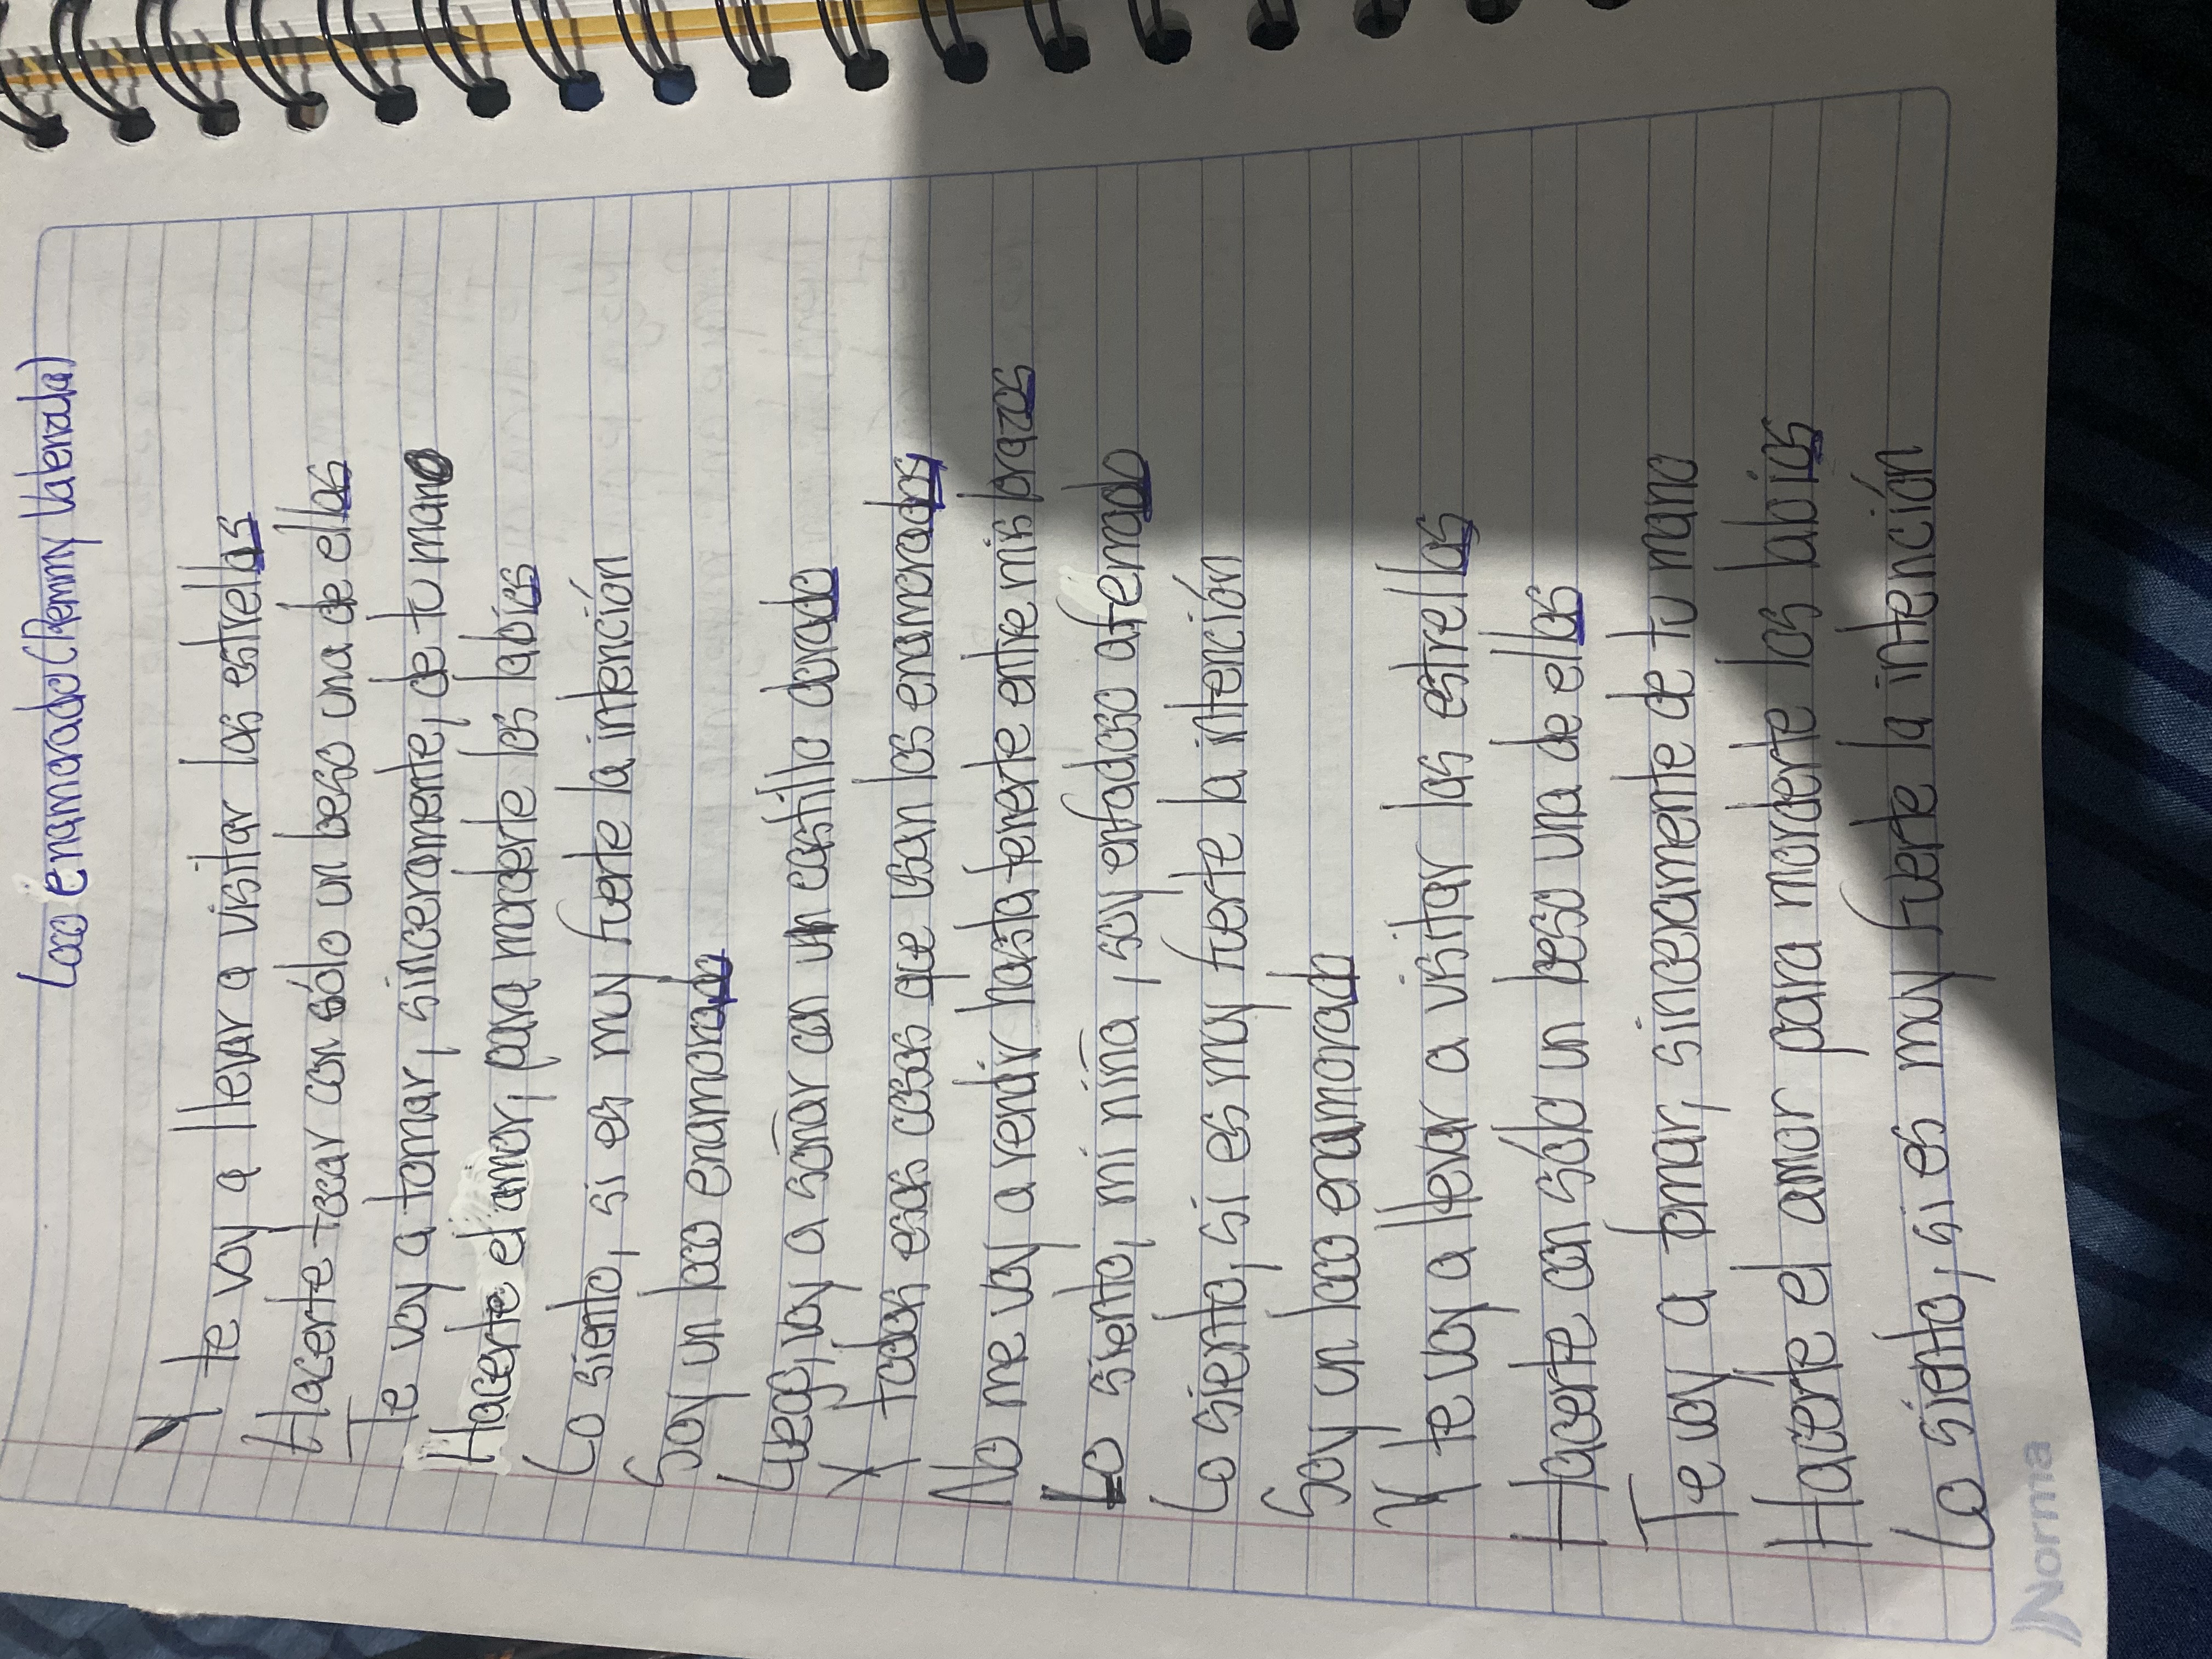 Loco enamorado (Remmy Valenzuela)
Y te voy a llevar a visitar las estrellas
Hacerte tocar con sólo un beso una de ellas
Te voy a tomar, sinceramente, de tu mano
Hacerte el amor, para morderte los labios
Lo siento, si es muy fuerte la intención
Soy un loco enamorado
Luego, voy a soñar con un castillo dorado
Y todas esas cosas que usan los enamorados
No me voy a rendir hasta tenerte entre mis brazos
Lo siento, mi niña, soy enfadoso aferrado
Lo siento, si es muy fuerte la intención
Soy un loco enamorado
Y te voy a llevar a visitar las estrellas
Hacerte con sólo un beso una de ellas
Te voy a tomar, sinceramente de tu mano
Hacerte el amor para morderte los labios
Lo siento, si es muy fuerte la intención
Norma